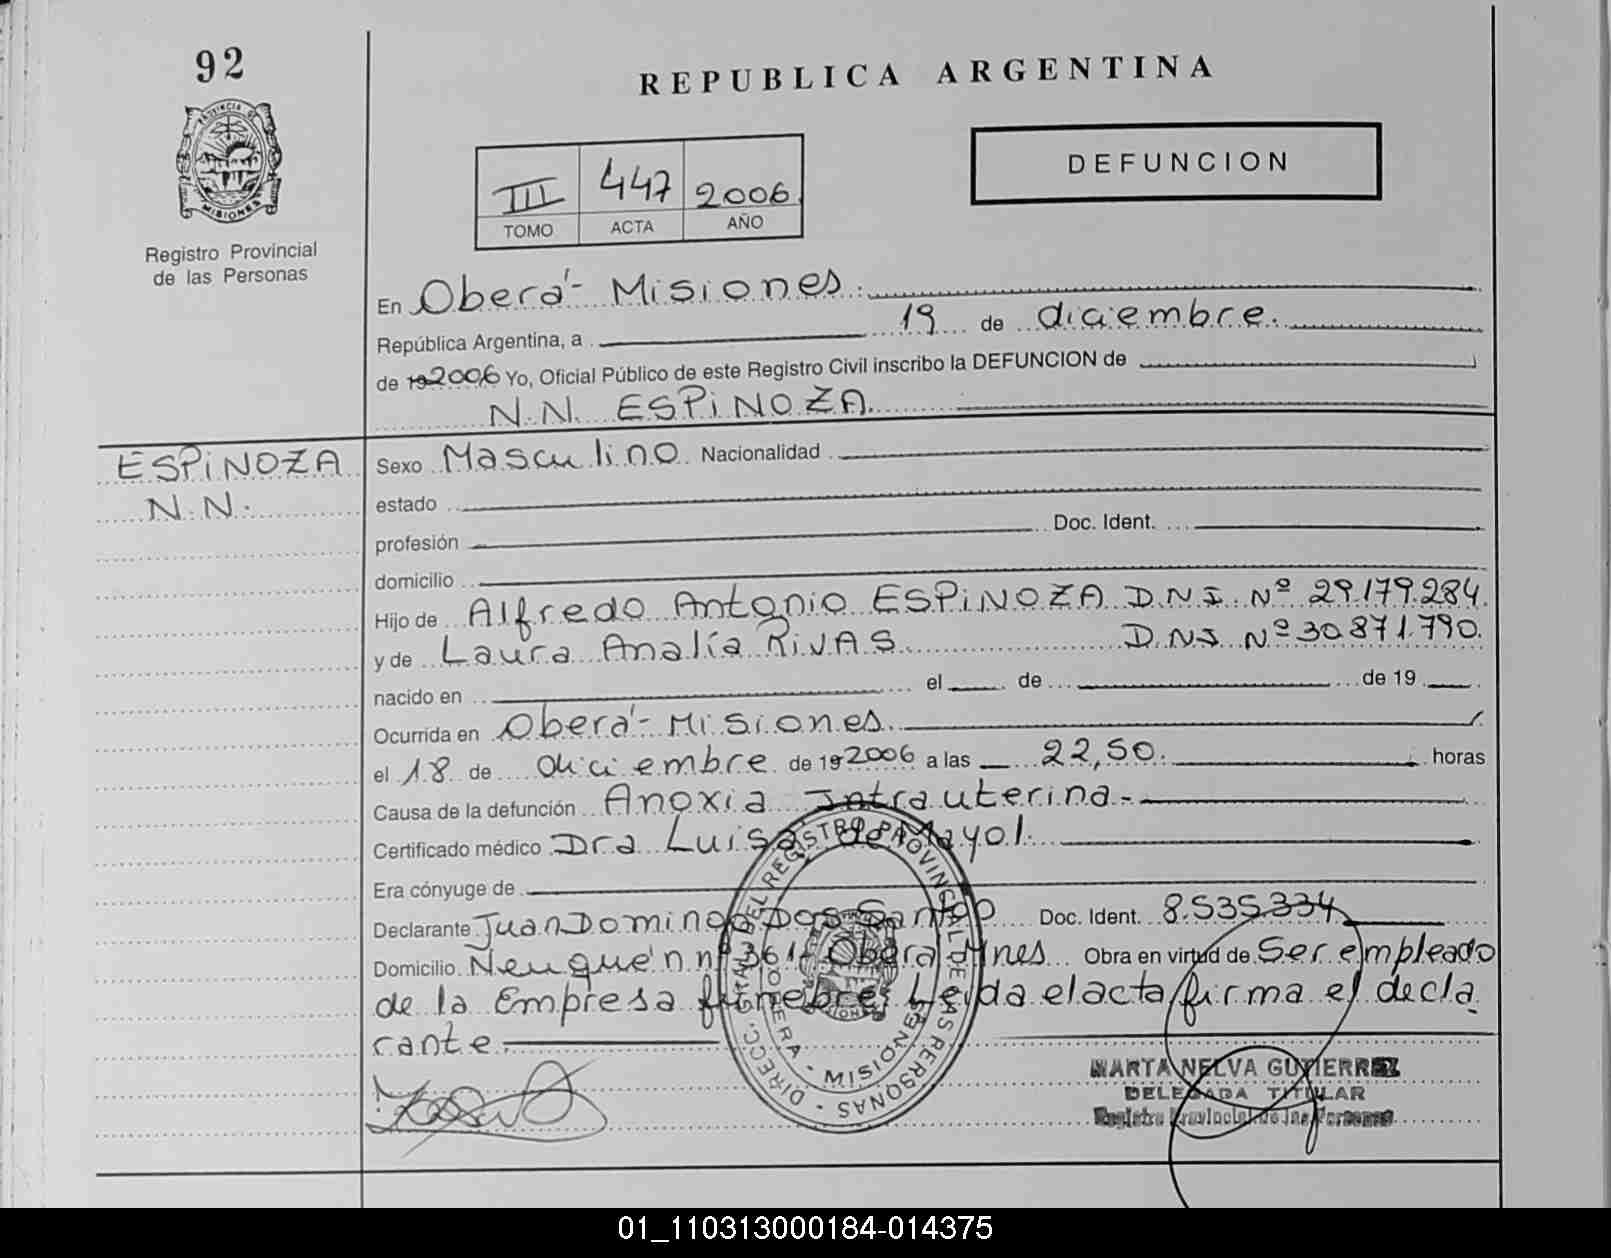 92
REPUBLICA ARGENTINA
PROVINCIA DE
MISIONES
Registro Provincial
de las Personas
DEFUNCION
III 447 2006
TOMO ACTA AÑO
En Oberá - Misiones.
República Argentina, a 19 de diciembre.
de 19 2006 Yo, Oficial Público de este Registro Civil inscribo la DEFUNCION de
N.N. ESPINOZA.
ESPINOZA
N.N.
Sexo Masculino Nacionalidad
estado
profesión Doc. Ident.
domicilio
Hijo de Alfredo Antonio ESPINOZA D.N.I. Nº 29.179.284.
y de Laura Analía RIVAS D.N.I. Nº 30.871.790.
nacido en el de de 19
Ocurrida en Oberá - Misiones.
el 18 de diciembre de 19 2006 a las 22,50. horas
Causa de la defunción Anoxia Intrauterina -
Certificado médico Dra Luisa de Mayol.
Era cónyuge de
Declarante Juan Domingo Dos Santos Doc. Ident. 8.535.334
Domicilio Neuquén nº 361 - Oberá Mnes. Obra en virtud de Ser empleado
de la Empresa fúnebre, Leida el acta firma el decla
rante.
DIRECC. GRAL. DEL REGISTRO PROVINCIAL DE LAS PERSONAS
MISIONES
MARTA NELVA GUTIERREZ
DELEGADA TITULAR
Registro Provincial de las Personas
01_110313000184-014375